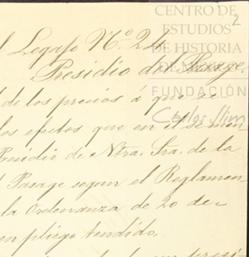 CENTRO DE
ESTUDIOS
DE HISTORIA
2
l Legajo Nº 2
Presidio del Pasage.
FUNDACIÓN
Carlos Slim
de los precios á que
los efectos que en el
Presidio de Ntra. Sra. de la
l Pasage segun el Reglamen
la Ordenanza de 20 de
en pliego tendido.